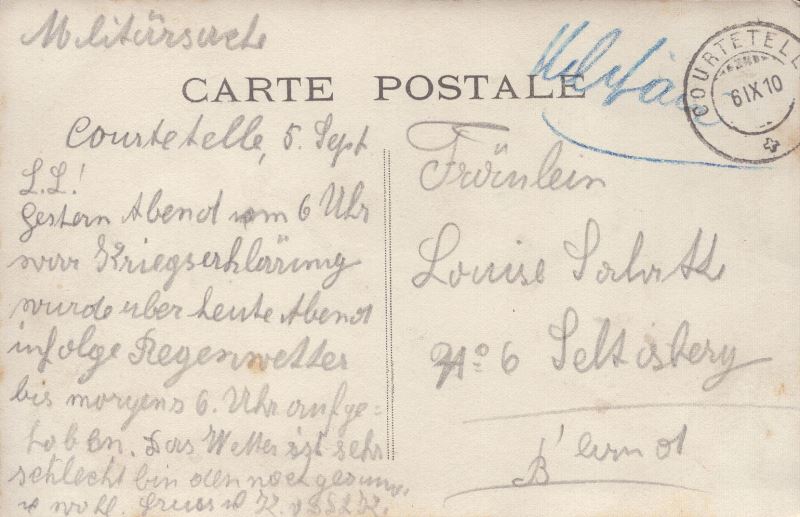 Militärsache
Militär
COURTETELLE
6 IX 10
CARTE POSTALE
Courtetelle, 5. Sept
L.L!
Gestern Abend um 6 Uhr
war Kriegserklärung
wurde aber heute Abend
infolge Regenwetter
bis morgens 6. Uhr aufge=
hoben. Das Wetter ist sehr
schlecht bin den noch gesund
u wohl. Gruss u K. v
Fräulein
Louise
No 6 Seltisberg
B'land